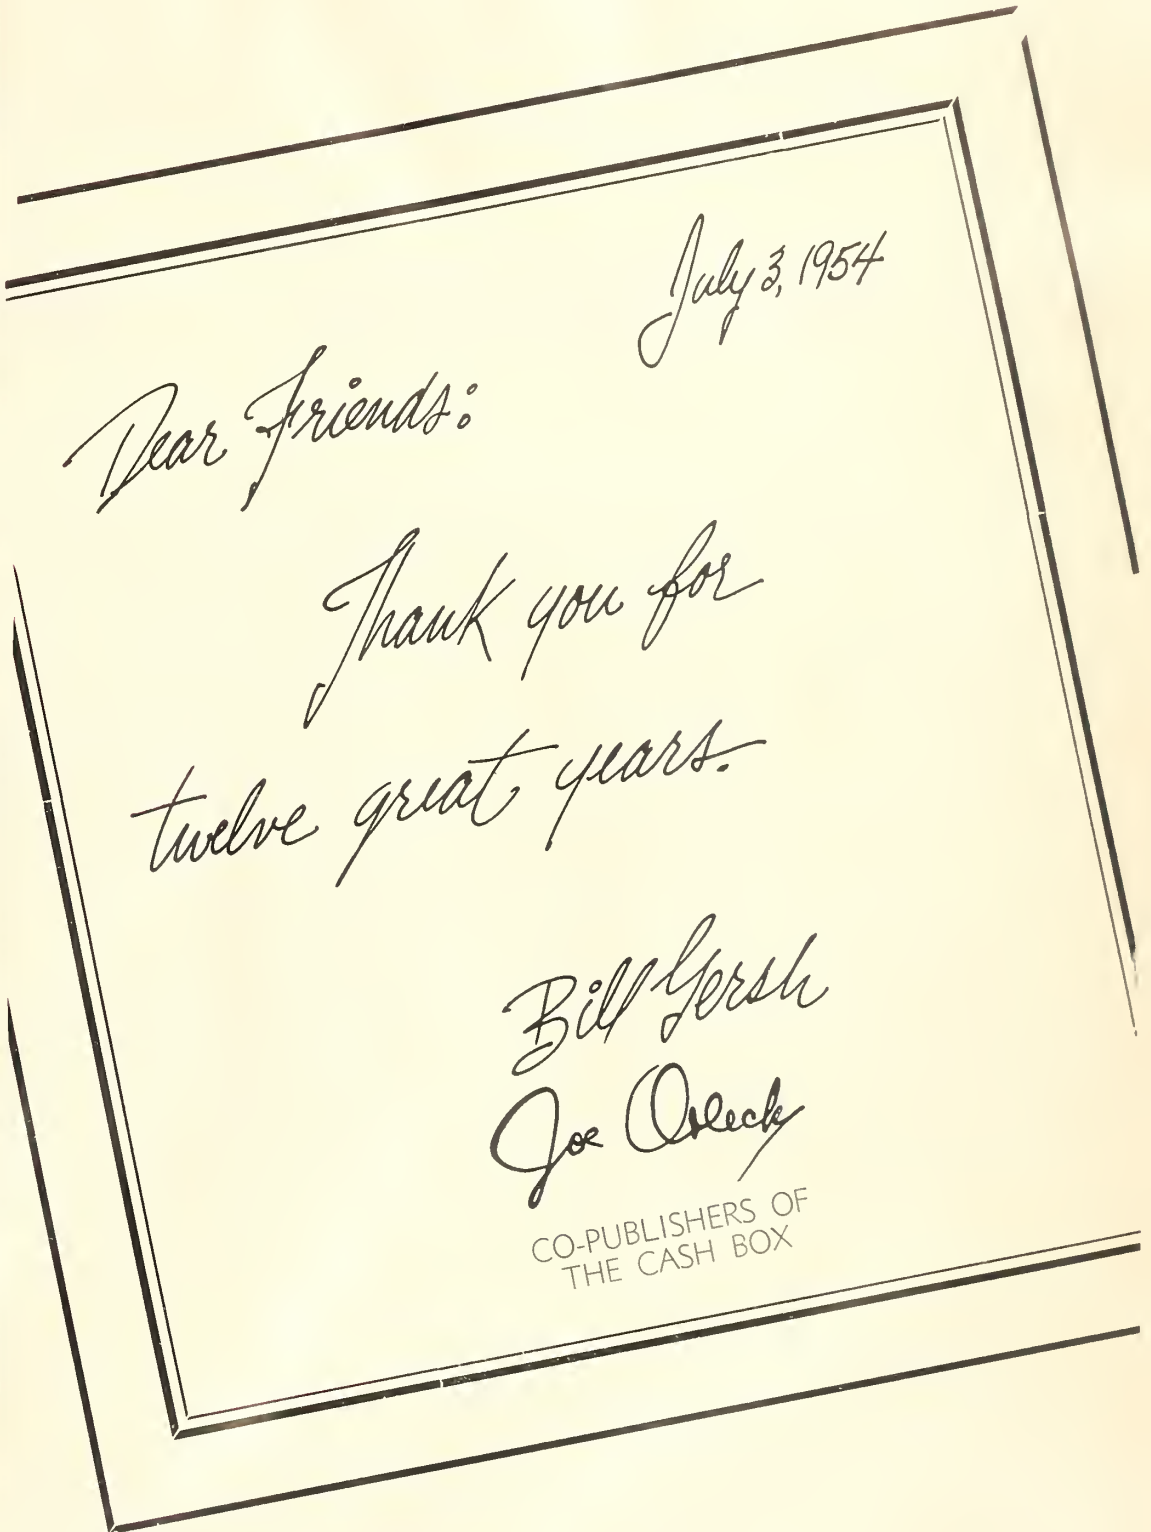 July 3, 1954
Dear Friends:
Thank you for
twelve great years.
Bill Gersh
Joe Orleck
CO-PUBLISHERS OF
THE CASH BOX